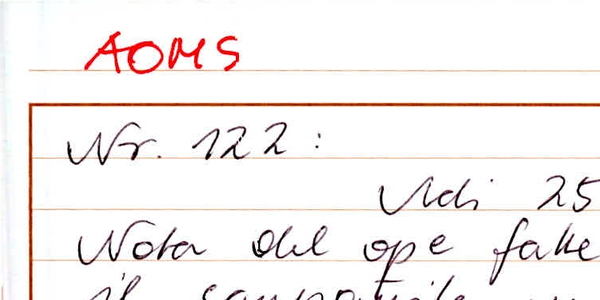 AOMS
Nr. 122:
Adi 25
Nota del ope fatte
il campanile